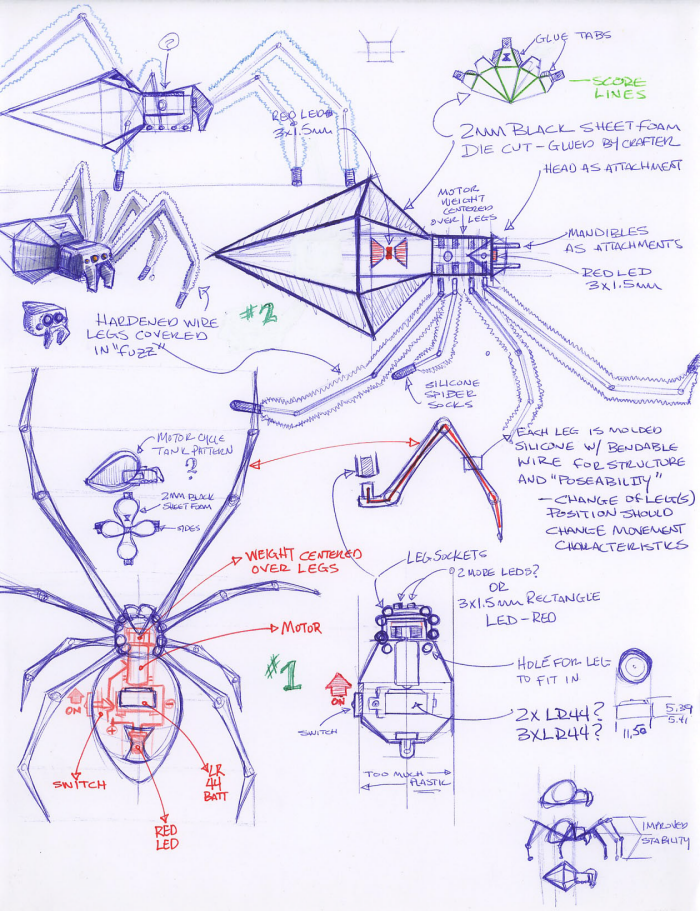 ?
GLUE TABS
SCORE
LINES
RED LED
3x1.5mm
2MM BLACK SHEET FOAM
DIE CUT - GLUED BY CRAFTER
HEAD AS ATTACHMENT
MOTOR
WEIGHT
CENTERED
OVER LEGS
MANDIBLES
AS ATTACHMENTS
RED LED
3x1.5mm
#2
HARDENED WIRE
LEGS COVERED
IN "FUZZ"
SILICONE
SPIDER
SOCKS
MOTOR CYCLE
TANK PATTERN
?
2MM BLACK
SHEET FOAM
SIDES
EACH LEG IS MOLDED
SILICONE W/ BENDABLE
WIRE FOR STRUCTURE
AND "POSEABILITY"
- CHANGE OF LEG(S)
POSITION SHOULD
CHANGE MOVEMENT
CHARACTERISTICS
WEIGHT CENTERED
OVER LEGS
LEG SOCKETS
2 MORE LEDS?
OR
3x1.5mm RECTANGLE
LED - RED
MOTOR
#1
HOLE FOR LEG
TO FIT IN
ON
ON
SWITCH
2x LR44?
3x LR44?
5.39
5.41
11,50
+
-
SWITCH
LR
44
BATT
RED
LED
TOO MUCH
PLASTIC
IMPROVED
STABILITY